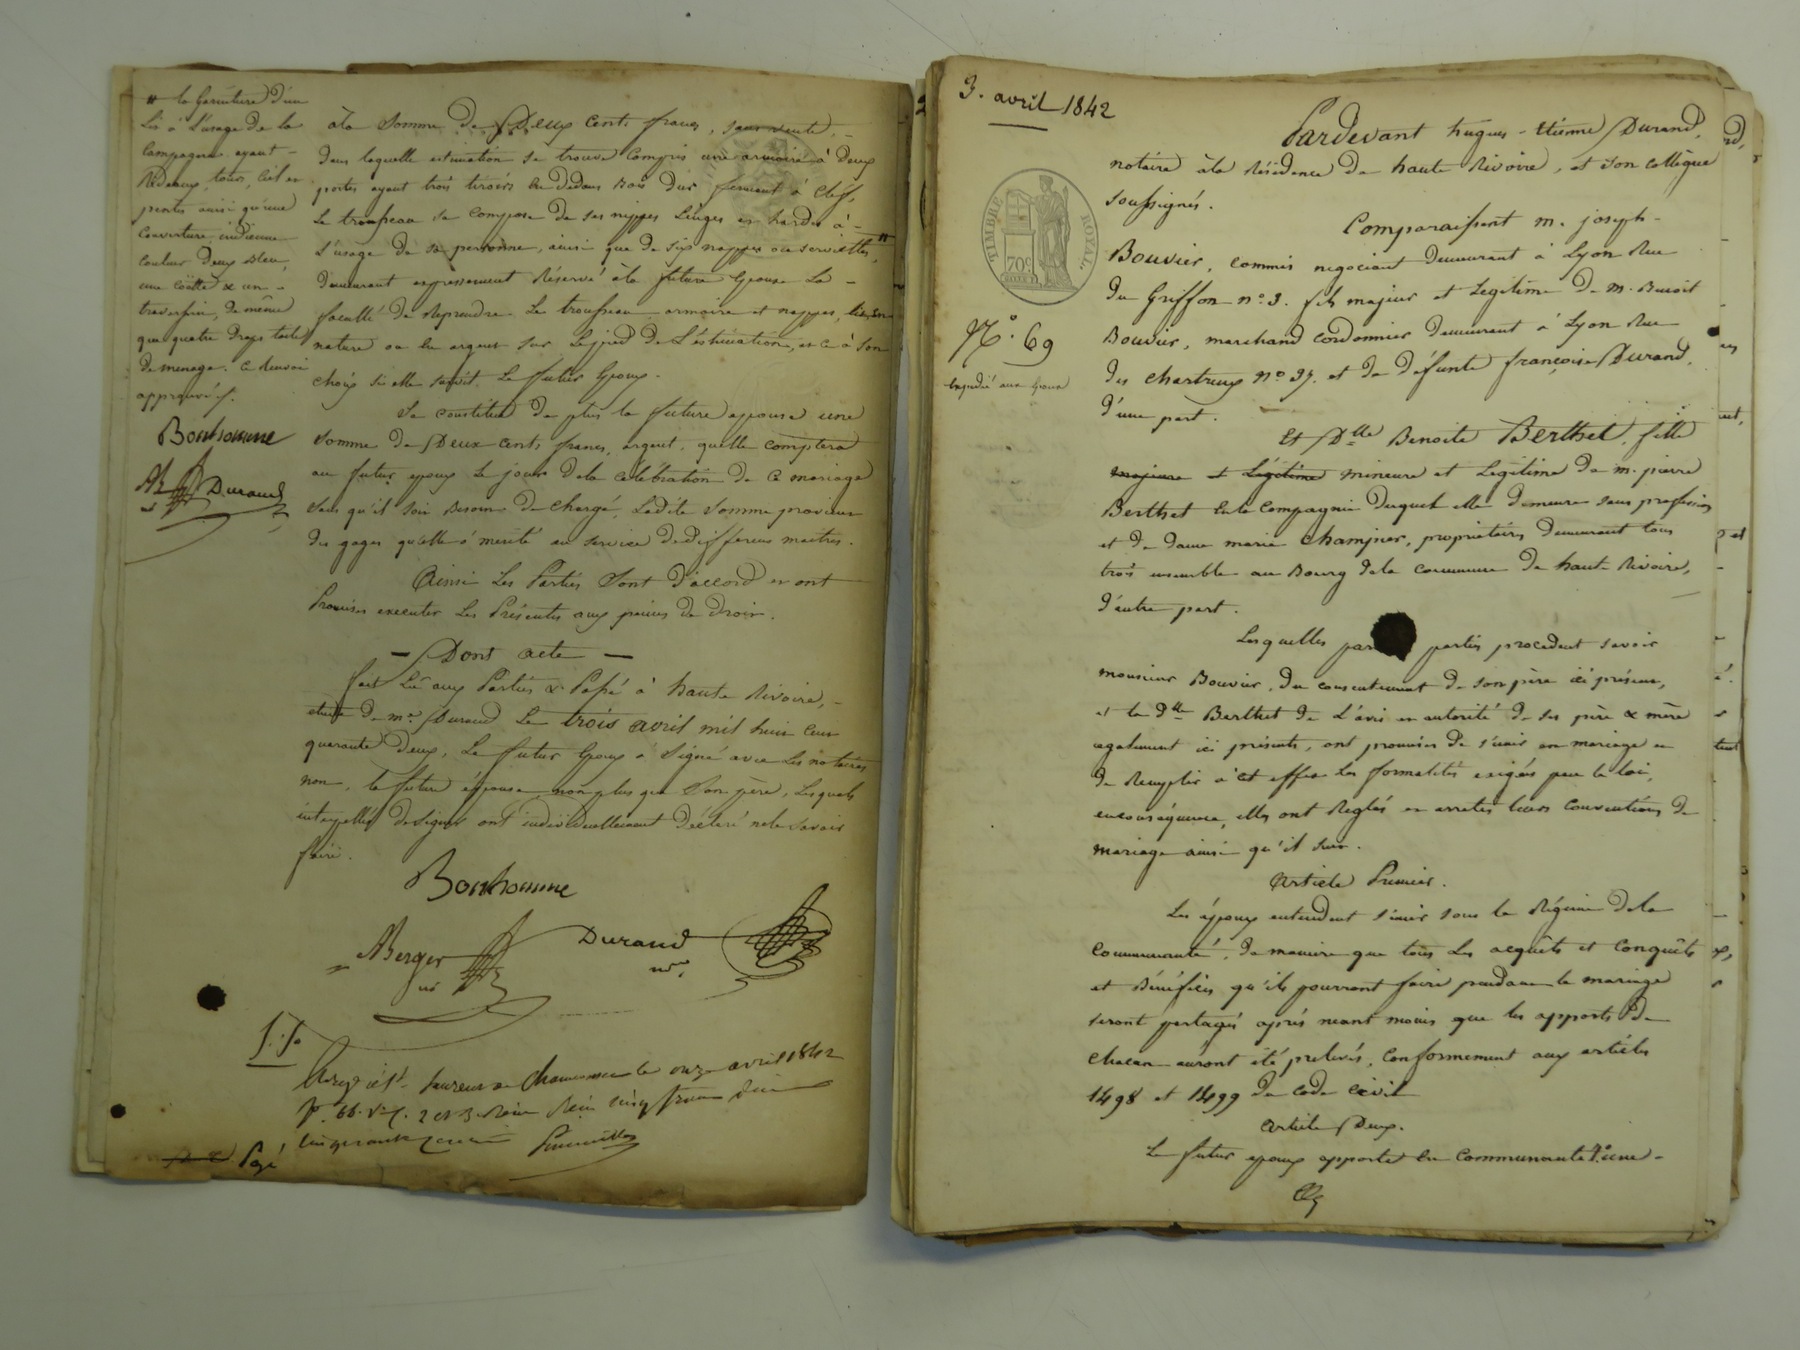 " la Garniture d'un
Lit à l'usage de la
Campagne ayant
Rideaux, tour, Ciel et
pentes ainsi qu'une
Couverture indienne
Couleur Deux Bleu,
une Coëtte & un
traversin, de même
que quatre Draps toile
De menage. Ce Renvoi
approuvé /.
Bonhomme
AB Durand
à la Somme de Deux Cents francs, sans vente,
Dans laquelle estimation se trouve Compris une armoire à Deux
portes ayant trois tiroirs en Dedans Bois Dur fermant à Cleff,
Le trousseau se Compose De ses nippes Linges et hardes à
L'usage De sa personne, ainsi que de six nappes ou serviettes, "
Demeurant expressement Réservé à la future Epouse La
faculté De Reprendre Le trousseau armoire et nappes, lit, en
nature ou En argent sur Le pied De L'éstimation, et ce à son
choix si elle survit Le futur Epoux.
Se constitue De plus la future epouse une
Somme de Deux Cents francs, argent, qu'elle comptera
au futur epoux Le jour De la Célébration de Ce mariage
Sans qu'il soit Besoin De charge, Ladite Somme provient
Des gages qu'elle a mérité au service De Différens maitres.
Ainsi Les Parties Sont D'accord et ont
Promises executer Les Présentes aux peines de Droit.
— Dont acte —
fait Lu aux Parties & Passé à haute Rivoire,
étude De me Durand Le trois avril mil huit Cent
quarante Deux, Le futur Epoux a Signé avec Les notaires
non, la future épouse non plus que Son père, Lesquels
interpellés De Signer ont individuellement Déclaré ne le Savoir
faire.
Bonhomme
ABerger
Durand
nre
Enregist. à St. Laurent de Chamousset le onze avril 1842
fo. 66. Vo C. 2 et 3. Reçu cinq francs dixieme
cinquante centimes
Payé
3. avril 1842
Pardevant hugues-Etienne Durand,
notaire à la Résidence De haute Rivoire, et son collègue
soussignés.
TIMBRE ROYAL.
70c
No. 69
Expedié aux Epoux
Comparaissent m. joseph
Bouvier, commis negociant Demeurant à Lyon Rue
Du Griffon no. 3. fils majeur et Legitime De m. Benoit
Bouvier, marchand Cordonnier Demeurant à Lyon Rue
Des chartreux no. 37. et De Défunte françoise Durand,
D'une part.
Et Dlle Benoite Berthet, fille
majeure et Légitime mineure et Legitime De m. pierre
Berthet En la Compagnie Duquel elle Demeure sans profession
et De Dame marie Champier, propriétaires Demeurant tous
trois ensemble au Bourg De la Commune De haute Rivoire,
D'autre part.
Lesquelles parties procedent savoir
monsieur Bouvier, Du consentement de son père ici présent,
et la Dlle Berthet De L'avis et autorité De ses père & mère
egalement ici présents, ont promises De s'unir en mariage et
De Remplir à cet effet Les formalités exigées par la loi,
en conséquence, elles ont Réglés et arretés leurs Conventions De
mariage ainsi qu'il Suit.
Article Premier.
Les époux entendent s'unir sous le Régime De la
Communauté, De maniere que tous Les acquêts et Conquêts
et Bénéfices qu'ils pourront faire pendant le mariage
seront partagés après neant moins que les apports De
Chacun auront été prelevés, Conformement aux articles
1498 et 1499 Du Code Civil
Article Deux.
Le futur epoux apporte En Communauté D'une